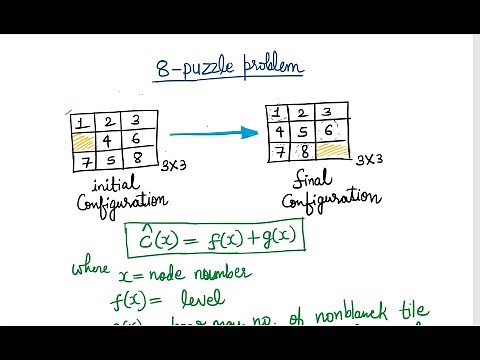 8-puzzle problem
1 2 3
4 6
7 5 8
3X3
initial
Configuration
1 2 3
4 5 6
7 8
3X3
final
Configuration
ĉ(x) = f(x) + g(x)
where x = node number
f(x) = level
no. of nonblanck tile